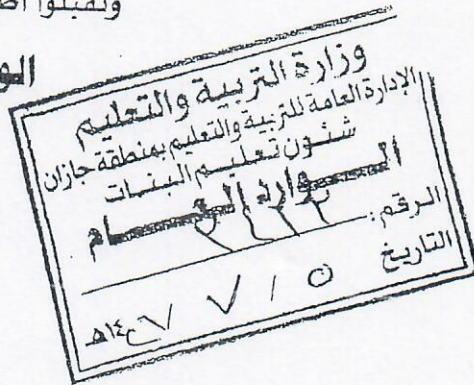 وتقبلوا
الو
وزارة التربية والتعليم
الإدارة العامة للتربية والتعليم بمنطقة جازان
شئون تعليم البنات
الوارد العام
الرقم:
التاريخ ٥ / ٧ / ١٤٢٧هـ